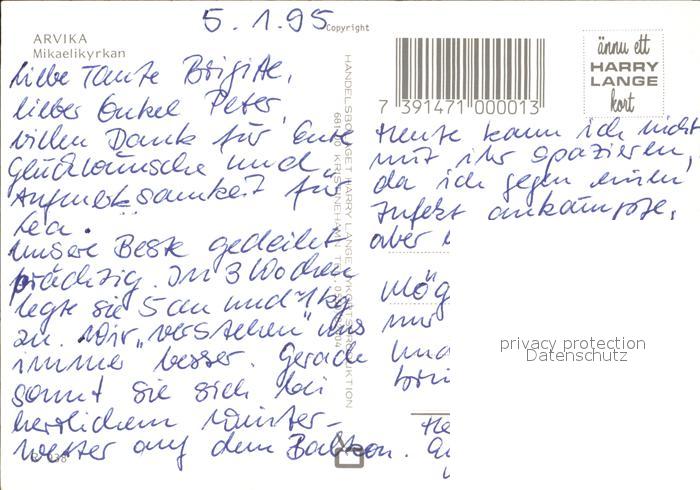 5.1.95
Copyright
ARVIKA
Mikaelikyrkan
Liebe Tante Brigitte,
lieber Onkel Peter,
vielen Dank für Eure
Glückwünsche und
Aufmerksamkeit für
Lea.
Unsere Beste gedeiht
prächtig. In 3 Wochen
legte sie 5cm und 1kg
zu. Wir „verstehen“ uns
immer besser. Gerade
sonnt sie sich bei
herrlichem Winter-
wetter auf dem Balkon.
HANDELSBOLAGET HARRY LANGE VYKORTSPRODUKTION
KRISTINEHAMN
7 391471 000013
ännu ett
HARRY
LANGE
kort
Heute kann ich nicht
mit ihr spazieren,
da ich gegen einen
Infekt ankämpfe,
aber
mög
nur
Und
privacy protection
Datenschutz